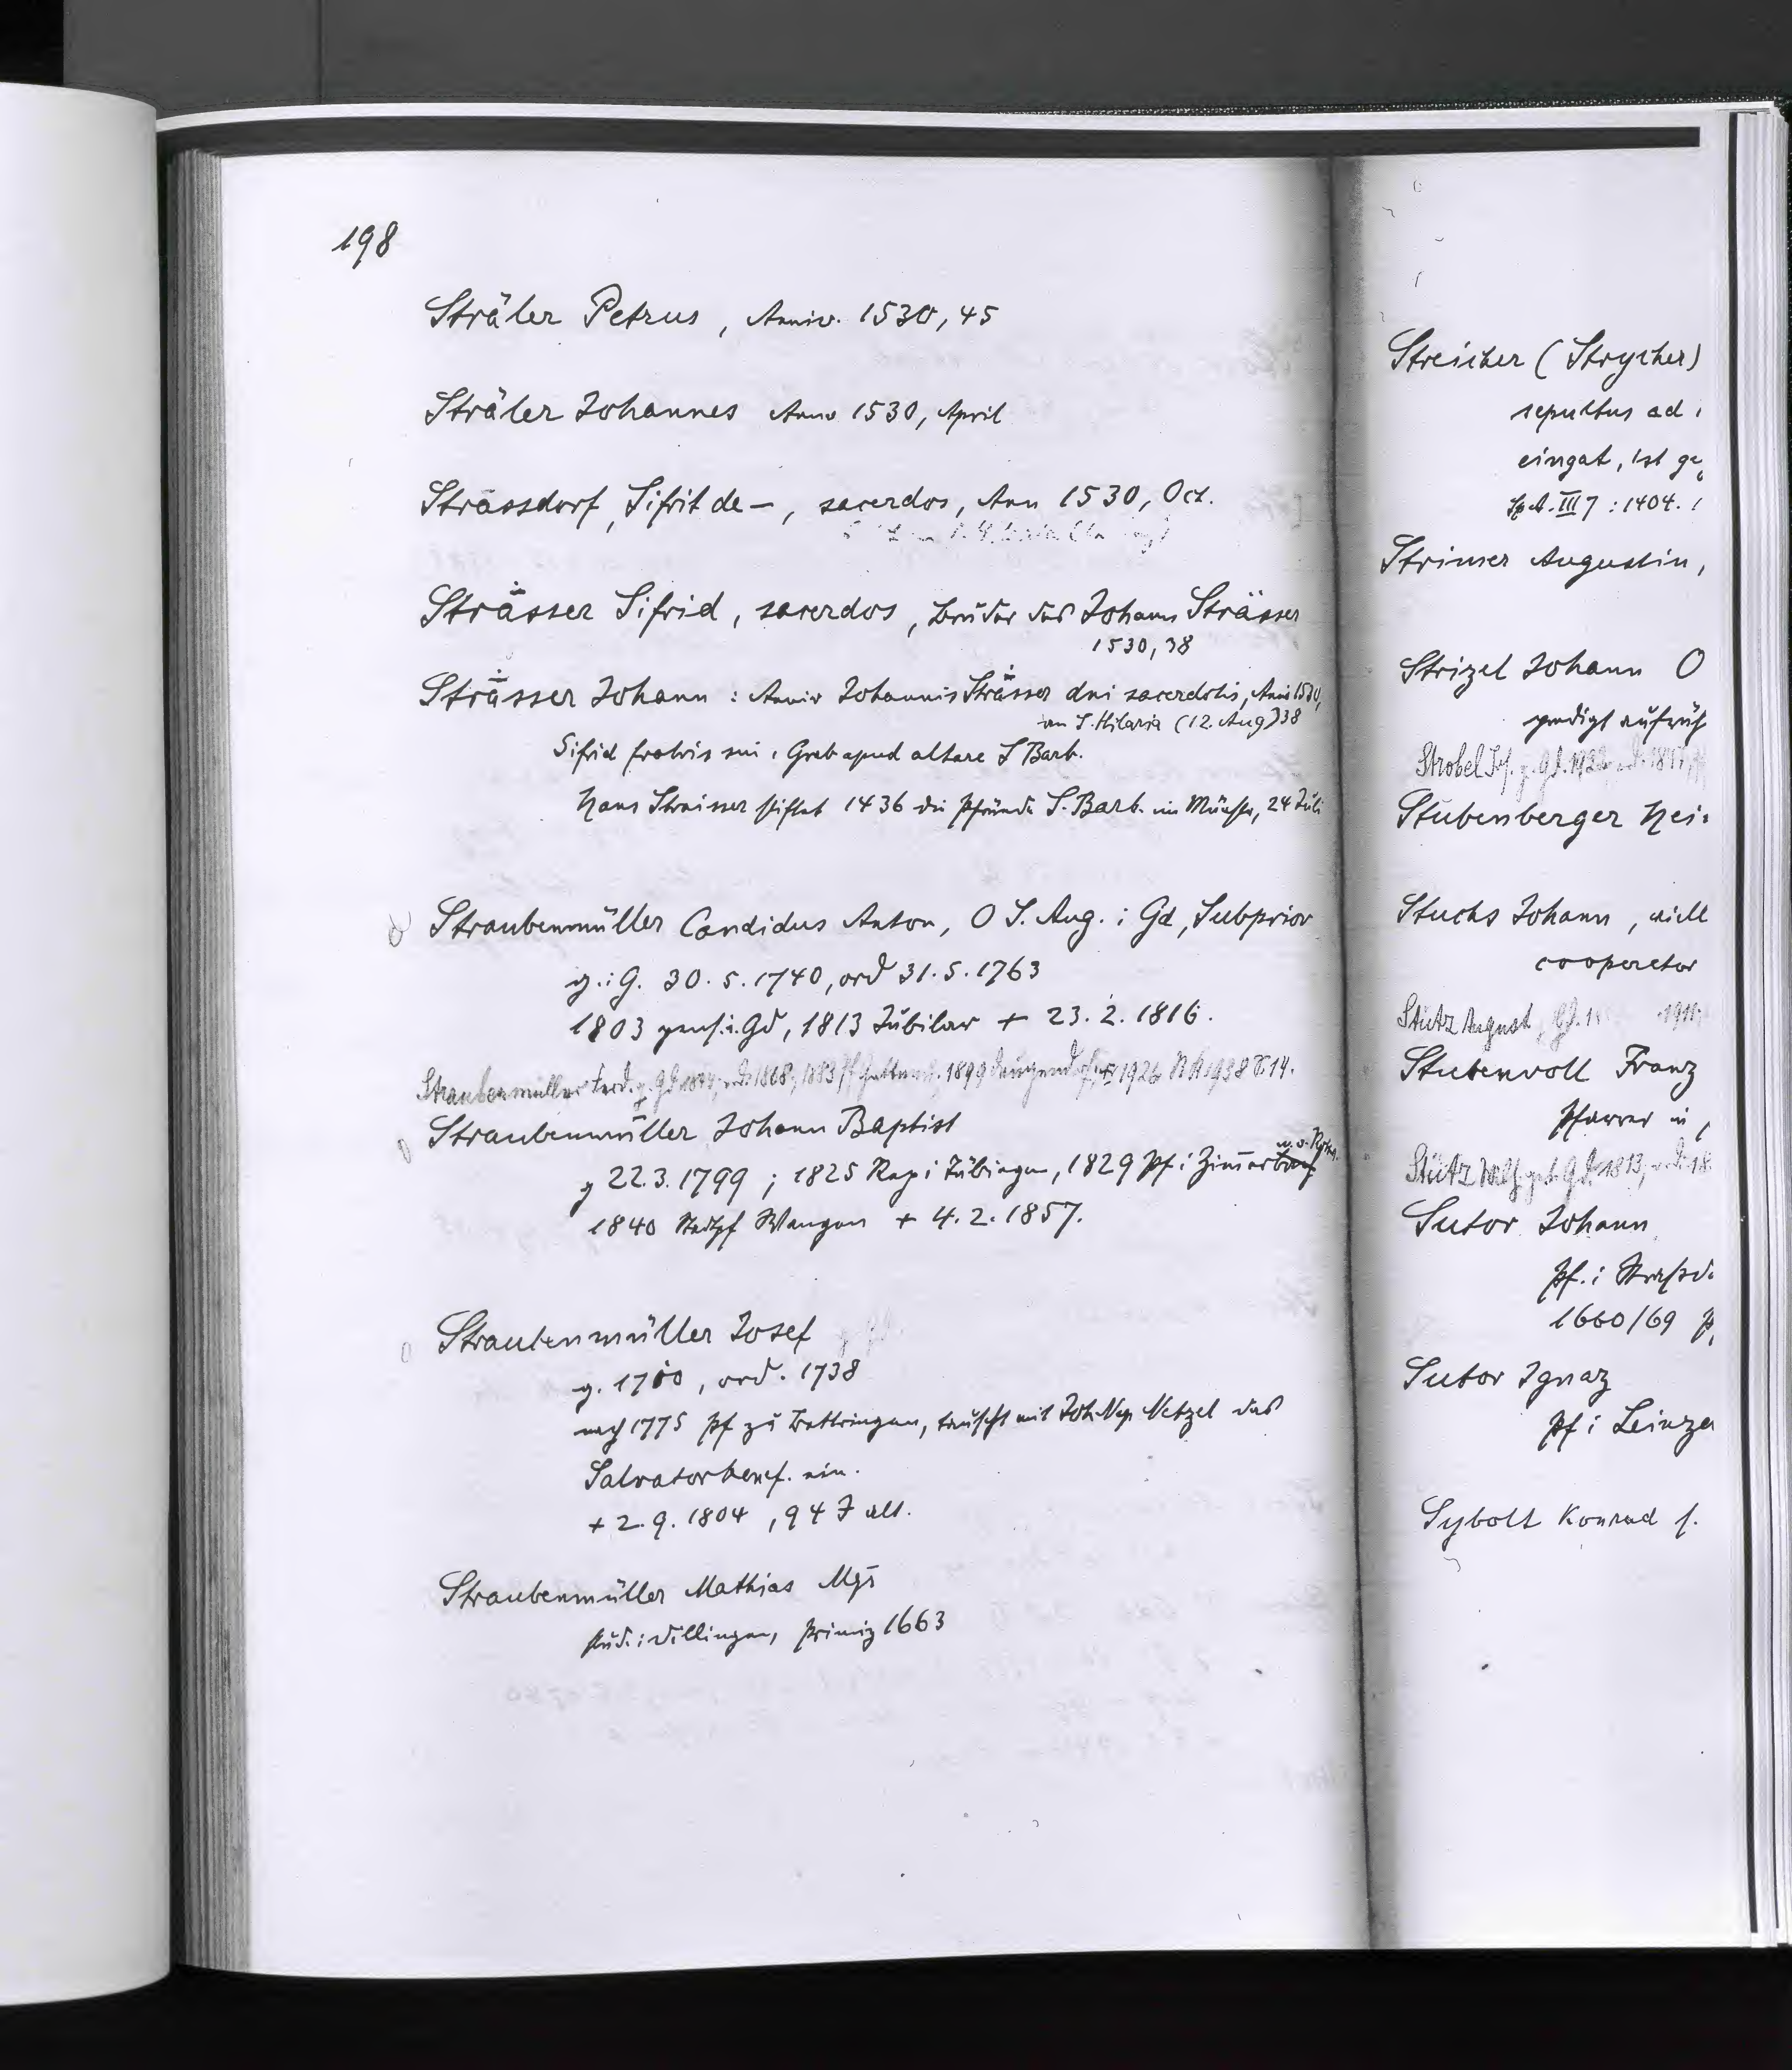 198
Sträler Petrus, Anniv. 1530, 45
Sträler Johannes Anno 1530, April
Strässdorf, Sifrit de –, sacerdos, Ann 1530, Oct.
Strässer Sifrid, sacerdos, Bruder des Johann Strässer
1530, 38
Strässer Johann : Anniv Johannis Strässer dni sacerdotis, Anno 1530,
an S. Hilaria (12. Aug) 38
Sifrid fratris sui, Grab apud altare S Barb.
Hans Straisser stiftet 1436 die Pfründe S. Barb. im Münster, 24 Juli
Straubenmüller Candidus Anton, O S. Aug. i Gd, Subprior
g. i G. 30. 5. 1740, ord 31. 5. 1763
1803 pens. i. Gd, 1813 Jubilar + 23. 2. 1816.
Straubenmüller Ferd. g. Gd 1868, 1883 1899 1926 1938
Straubenmüller Johann Baptist
g 22. 3. 1799 ; 1825 Rep i Tübingen, 1829 Pf i
1840 Stadtpf Wangen + 4. 2. 1857.
Straubenmüller Josef g. Gd.
g. 1710, ord. 1738
nach 1775 Pf zu Bettringen, tauscht mit Joh Nep Netzel das
Salvatorbenef. ein.
+ 2. 9. 1804, 94 J alt.
Straubenmüller Mathias Mgr
stud. i Dillingen, Primiz 1663
Streicher (Strycher)
sepultus ad
eingat, ist
Sp A. III 7 : 1404.
Strimer Augustin,
Strizel Johann O
predigt
Strobel Jos. g. Gd.
Stubenberger
Stuchs Johann,
cooperator
Stütz August
Stubenvoll Franz
Pfarrer in
Stütz
Sutor Johann
Pf. i
1660/69
Sutor Ignaz
Pf i
Sybolt Konrad s.